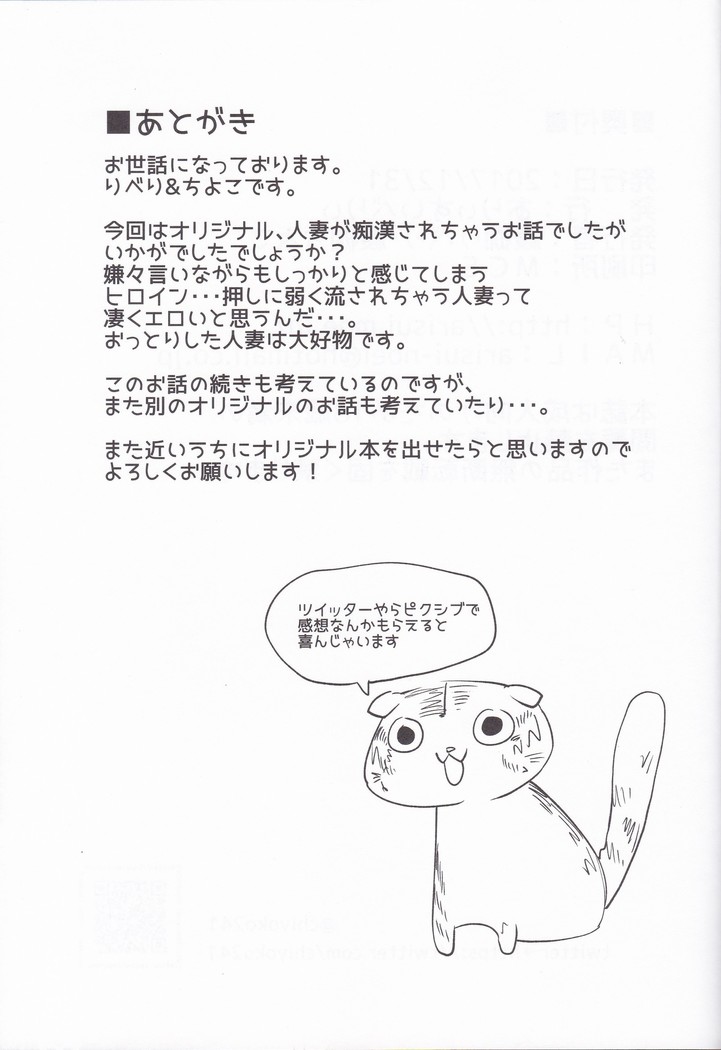 ■あとがき
お世話になっております。
りべり&ちよこです。
今回はオリジナル、人妻が痴漢されちゃうお話でしたが
いかがでしたでしょうか？
嫌々言いながらもしっかりと感じてしまう
ヒロイン・・・押しに弱く流されちゃう人妻って
凄くエロいと思うんだ・・・。
おっとりした人妻は大好物です。
このお話の続きも考えているのですが、
また別のオリジナルのお話も考えていたり・・・。
また近いうちにオリジナル本を出せたらと思いますので
よろしくお願いします！
ツイッターやらピクシブで
感想なんかもらえると
喜んじゃいます